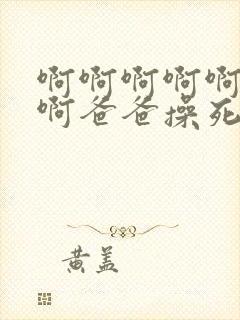 啊啊啊啊啊
啊爸爸操死
黄盖